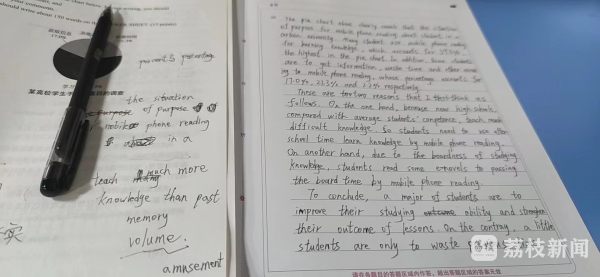 your comments.
should write about 150 words on the
percents percentage
某高校学生手机阅读目的调查
the situation
of purpose of
mobile phone reading
in a
teach much more
knowledge than past
memory
volume.
amusement
实
The pie chart above clearly reach that the situation
of purpose for mobile phone reading about student in a
certain university. Many student use mobile phone reading
for learning knowledge, which accounts for
the highest in the pie chart. In addition, some students
are to get information, waste time and other
to mobile phone reading, whose percentage accounts for
17.0%, 21.3% and 2.2% respectively.
These are two reasons that I think as
follows. On the one hand, because now high schools,
compared with average students' competence, teach much
difficult knowledge. So students need to use after
school time learn knowledge by mobile phone reading.
On another hand, due to the boardness of studying
knowledge, students read some e-novels to passing
the board time by mobile phone reading.
To conclude, a major of students are to
improve their studying ability and strengthen
their outcome of lessons. On the contrary, a little
students are only to waste
请在各题目的答题区域内作答，超出答题区域的答案无效
荔枝新闻